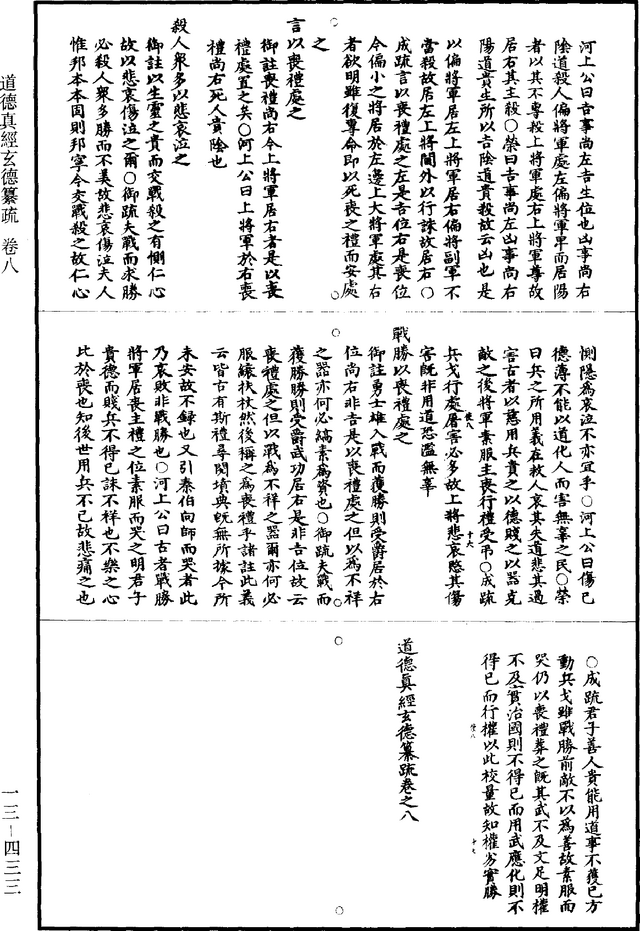 河上公曰吉事尚左吉生位也凶事尚右
陰道殺人偏將軍處左偏將軍卑而居陽
者以其不專殺上將軍處右上將軍尊故
居右其主殺○榮曰吉事尚左凶事尚右
陽道貴生所以吉陰道貴殺故云凶也是
以偏將軍居左上將軍居右偏將副軍不
當殺故居左上將閫外以行誅故居右○
成疏言以喪禮處之左是吉位右是喪位
今偏小之將居於左邊上大將軍處其右
者欲明雖復尊命即以死喪之禮而安處
之
言以喪禮處之
御註喪禮尚右今上將軍居右者是以喪
禮處置之矣○河上公曰上將軍於右喪
禮尚右死人貴陰也
殺人衆多以悲哀泣之
御註以生靈之貴而交戰殺之有惻仁心
故以悲哀傷泣之爾○御疏夫戰而求勝
必殺人衆多勝而不美故悲哀傷泣夫人
惟邦本本固則邦寧今交戰殺之故仁心
惻隱爲哀泣不亦宜乎○河上公曰傷己
德薄不能以道化人而害無辜之民○榮
曰兵之所用義在救人哀其失道悲其過
害古者以慈用兵貴之以德賤之以器克
敵之後將軍素服主喪行禮受弔○成疏
兵戈行處屠害必多故上將悲哀愍其傷
害既非用道恐濫無辜
戰勝以喪禮處之
御註勇士雄入戰而獲勝則受爵居於右
位尚右非吉是以喪禮處之但以爲不祥
之器亦何必縞素爲資也○御疏夫戰而
獲勝勝則受爵武功居右是非吉位故云
喪禮處之但以戰爲不祥之器爾亦何必
服縗扶杖然後稱之爲喪禮乎諸註此義
云皆古有斯禮尋閱墳典既無所據今所
未安故不録也又引秦伯向師而哭者此
乃哀敗非戰勝也○河上公曰古者戰勝
將軍居喪主禮之位素服而哭之明君子
貴德而賤兵不得已誅不祥也不樂之心
比於喪也知後世用兵不已故悲痛之也
○成疏君子善人貴能用道事不獲已方
動兵戈雖戰勝前敵不以爲善故素服而
哭仍以喪禮葬之既其武不及文足明權
不及實治國則不得已而用武應化則不
得已而行權以此校量故知權劣實勝
道德真經玄德纂疏卷之八
道德真經玄德纂疏　卷八
一三—四三三